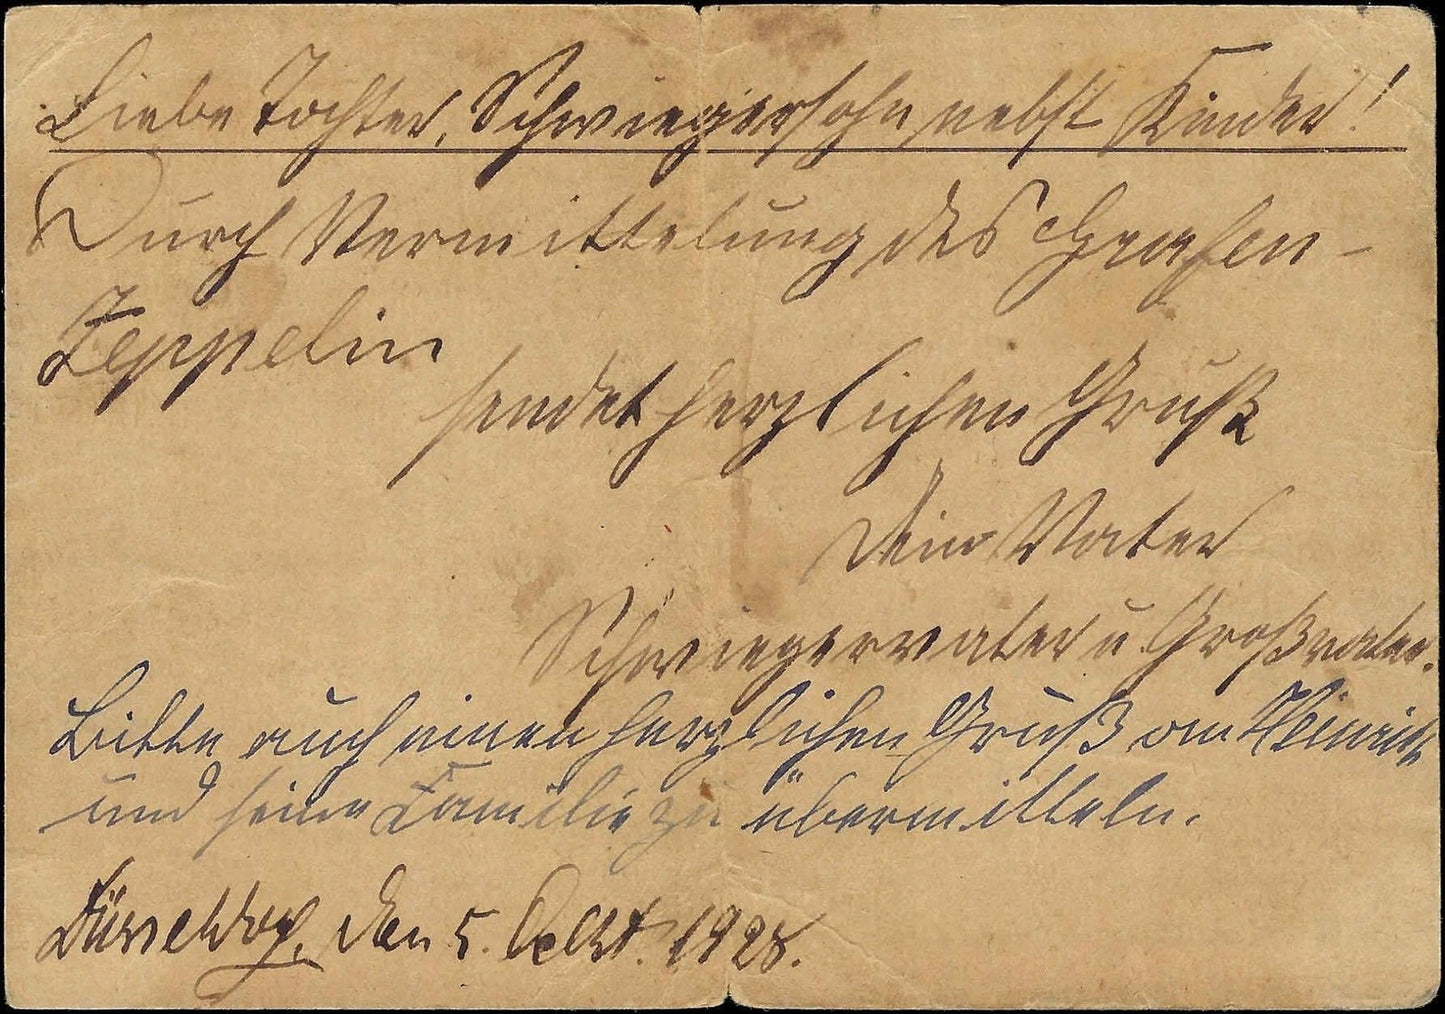 Liebe Tochter, Schwiegersohn, nebst Kinder!
Durch Vermittelung des Grafen-
Zeppelin
sendet herzlichen Gruß
Dein Vater
Schwiegervater u. Großvater.
Bitte auch einen herzlichen Gruß an
und seine Familie zu übermitteln.
Düsseldorf, den 5. Okt. 1928.